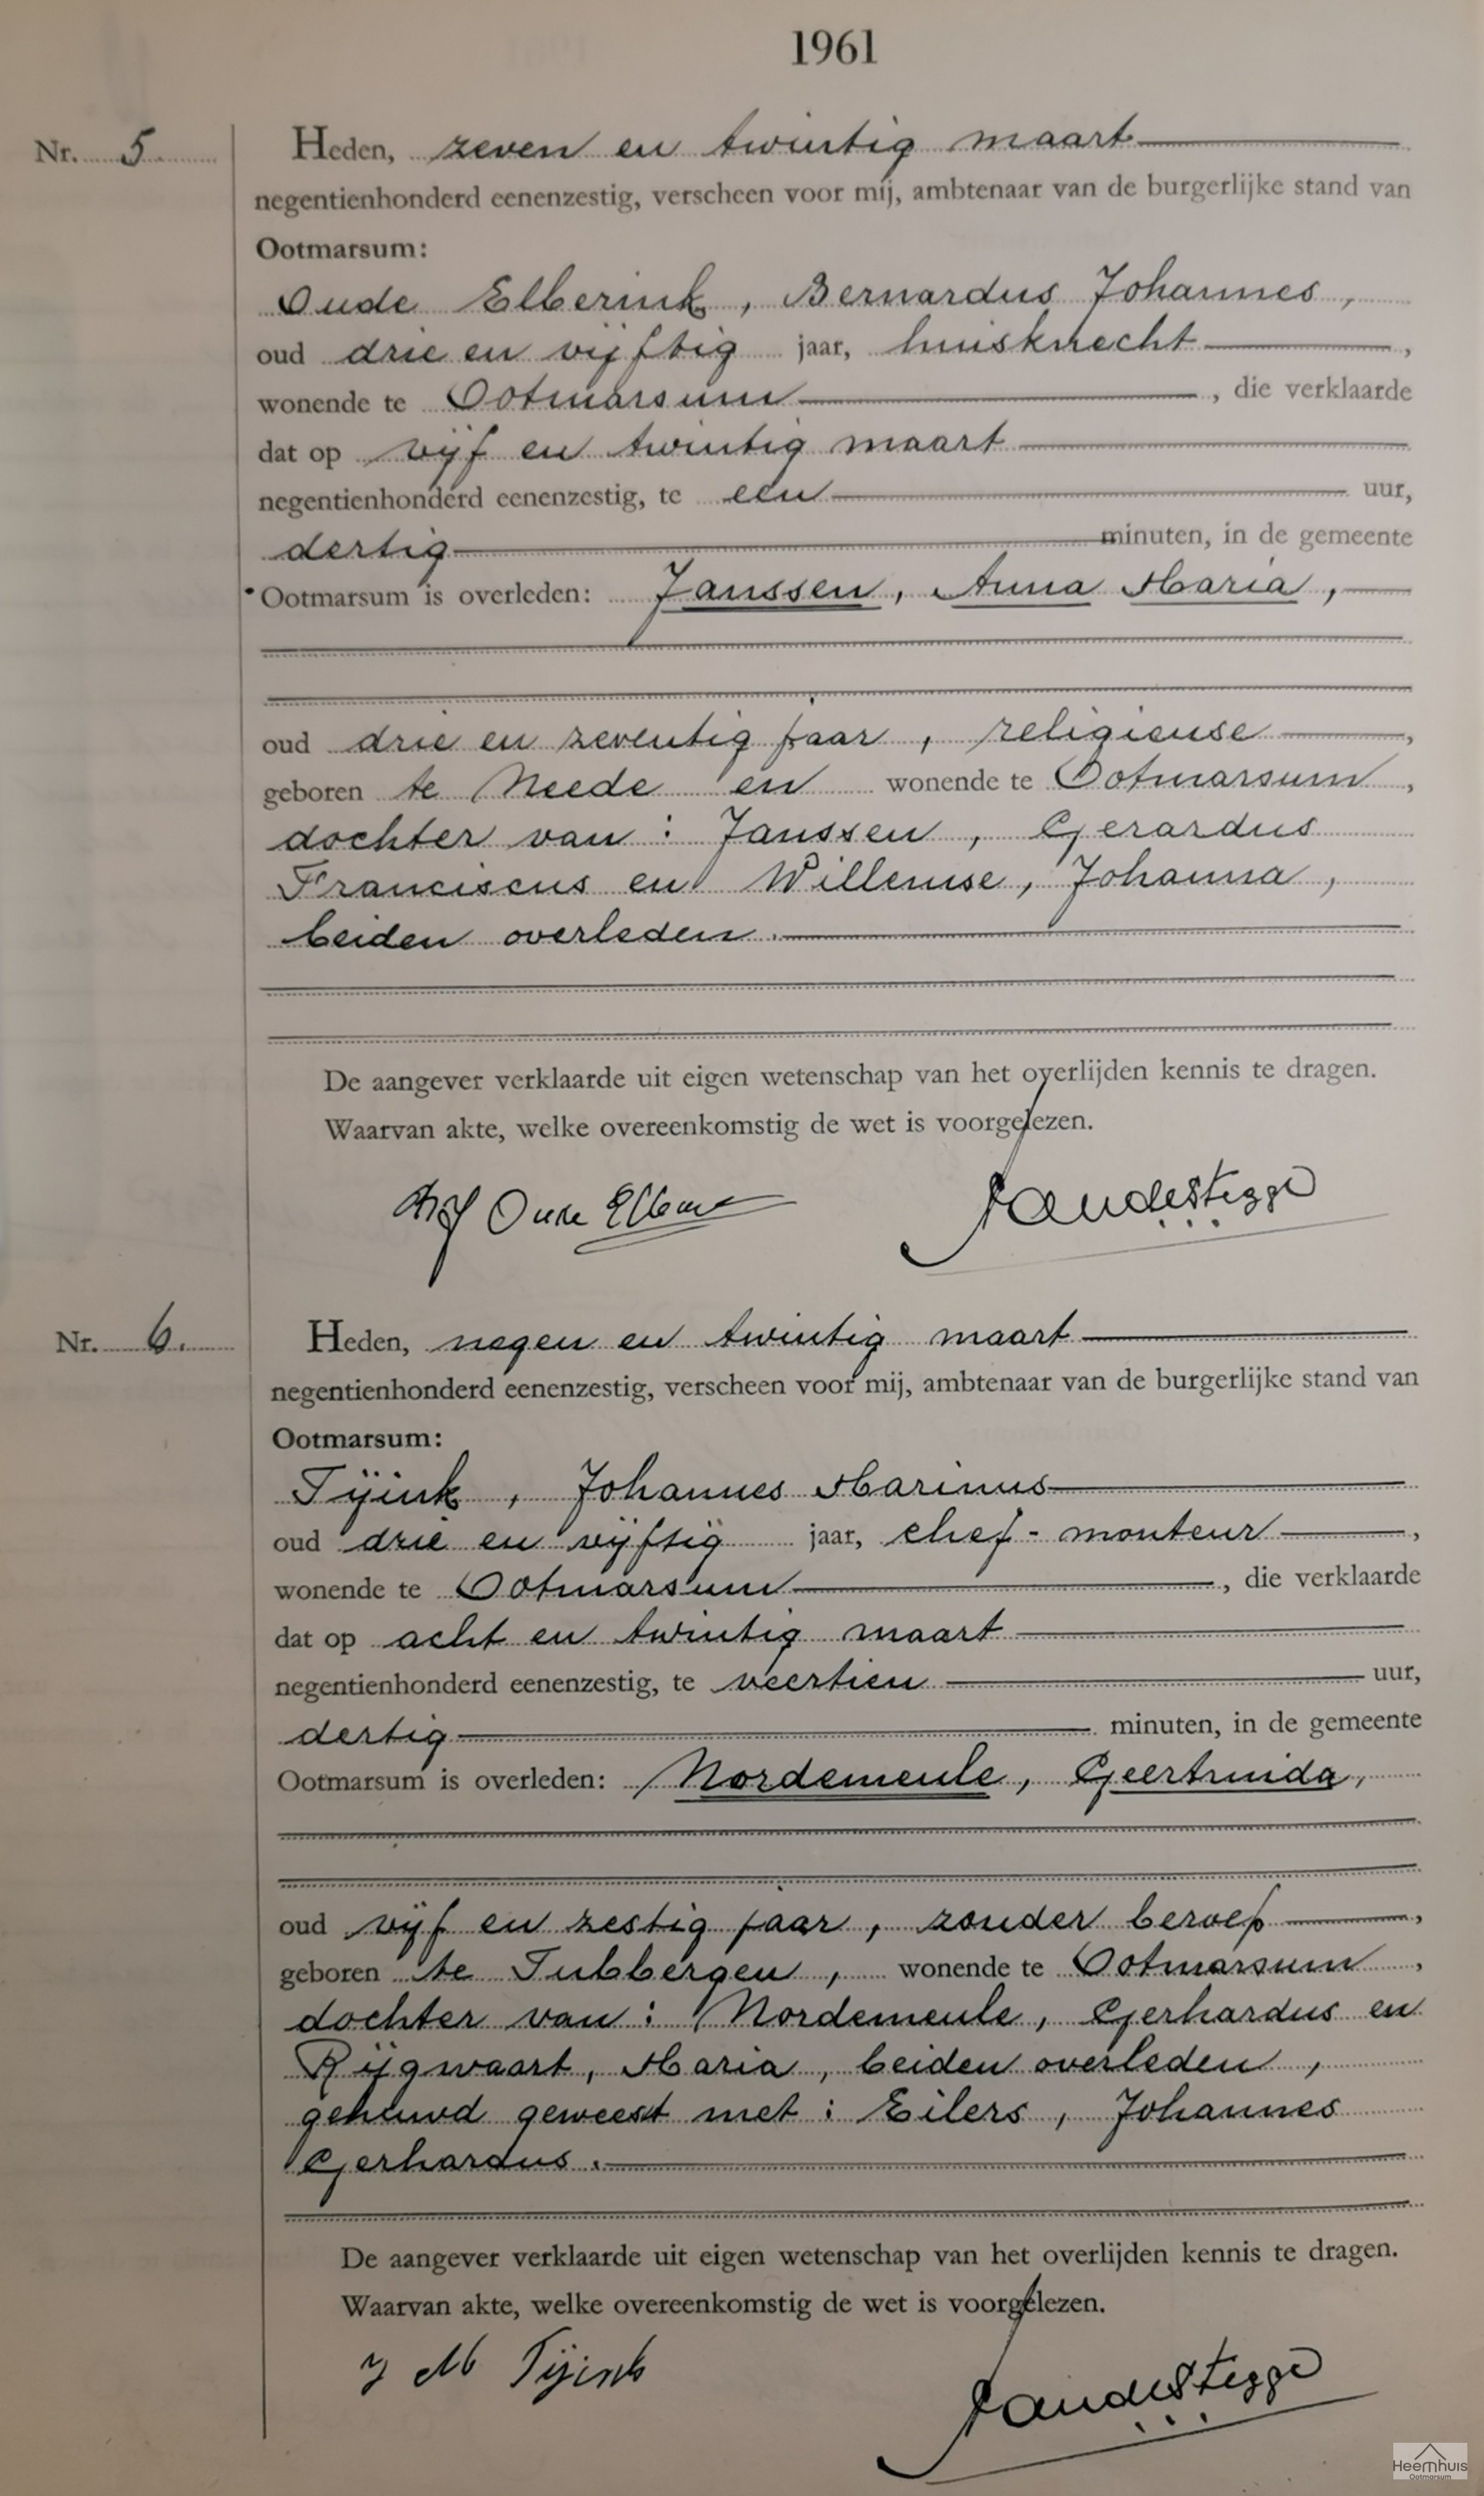 1961
Nr. 5.
Heden, zeven en twintig maart
negentienhonderd eenenzestig, verscheen voor mij, ambtenaar van de burgerlijke stand van
Ootmarsum:
Oude Elberink, Bernardus Johannes,
oud drie en vijftig jaar, huisknecht,
wonende te Ootmarsum, die verklaarde
dat op vijf en twintig maart
negentienhonderd eenenzestig, te een uur,
dertig minuten, in de gemeente
Ootmarsum is overleden: Janssen, Anna Maria,
oud drie en zeventig jaar, religieuse,
geboren te Neede en wonende te Ootmarsum,
dochter van: Janssen, Gerardus
Franciscus en Willemse, Johanna,
beiden overleden.
De aangever verklaarde uit eigen wetenschap van het overlijden kennis te dragen.
Waarvan akte, welke overeenkomstig de wet is voorgelezen.
Oude
Nr. 6.
Heden, negen en twintig maart
negentienhonderd eenenzestig, verscheen voor mij, ambtenaar van de burgerlijke stand van
Ootmarsum:
Tijink, Johannes Marinus
oud drie en vijftig jaar, chef-monteur,
wonende te Ootmarsum, die verklaarde
dat op acht en twintig maart
negentienhonderd eenenzestig, te veertien uur,
dertig minuten, in de gemeente
Ootmarsum is overleden: Nordemeule, Geertruida,
oud vijf en zestig jaar, zonder beroep,
geboren te Tubbergen, wonende te Ootmarsum,
dochter van: Nordemeule, Gerhardus en
Rijgwaart, Maria, beiden overleden,
gehuwd geweest met: Eilers, Johannes
Gerhardus.
De aangever verklaarde uit eigen wetenschap van het overlijden kennis te dragen.
Waarvan akte, welke overeenkomstig de wet is voorgelezen.
J M Tijink
Heemhuis
Ootmarsum